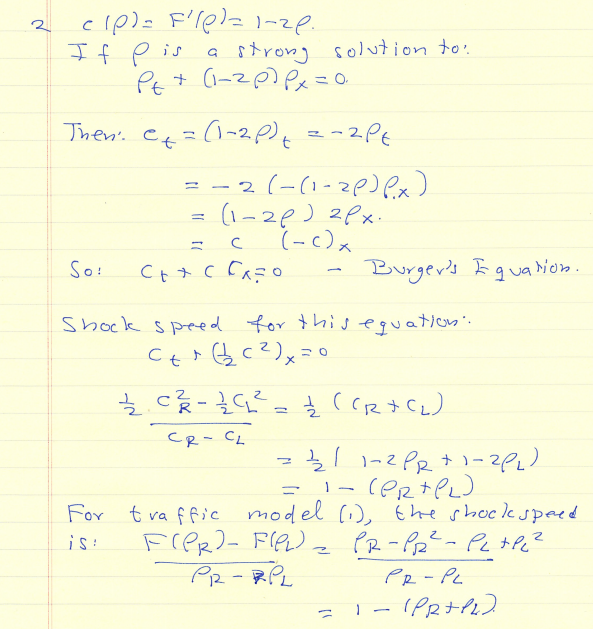 2 c(ρ) = F'(ρ) = 1-2ρ.
If ρ is a strong solution to:
ρ_t + (1-2ρ) ρ_x = 0.
Then: c_t = (1-2ρ)_t = -2ρ_t
= -2 (-(1-2ρ) ρ_x)
= (1-2ρ) 2ρ_x.
= c (-c)_x
So: c_t + c c_x = 0 - Burger's Equation.
Shock speed for this equation:
c_t + (½ c²)_x = 0
(½ c_R² - ½ c_L²) / (c_R - c_L) = ½ (c_R + c_L)
= ½ (1-2ρ_R + 1-2ρ_L)
= 1 - (ρ_R + ρ_L)
For traffic model (1), the shock speed
is: (F(ρ_R) - F(ρ_L)) / (ρ_R - ρ_L) = (ρ_R - ρ_R² - ρ_L + ρ_L²) / (ρ_R - ρ_L)
= 1 - (ρ_R + ρ_L)